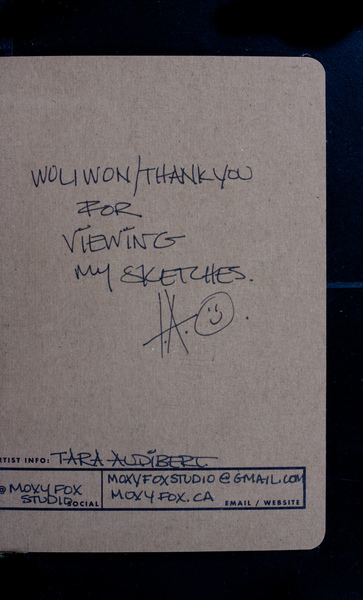 WOLIWON/THANK YOU
FOR
VIEWING
MY SKETCHES.
T.A.
RTIST INFO: TARA AUDIBERT
@MOXYFOX
STUDIO SOCIAL
MOXYFOXSTUDIO@GMAIL.COM
MOXYFOX.CA EMAIL / WEBSITE